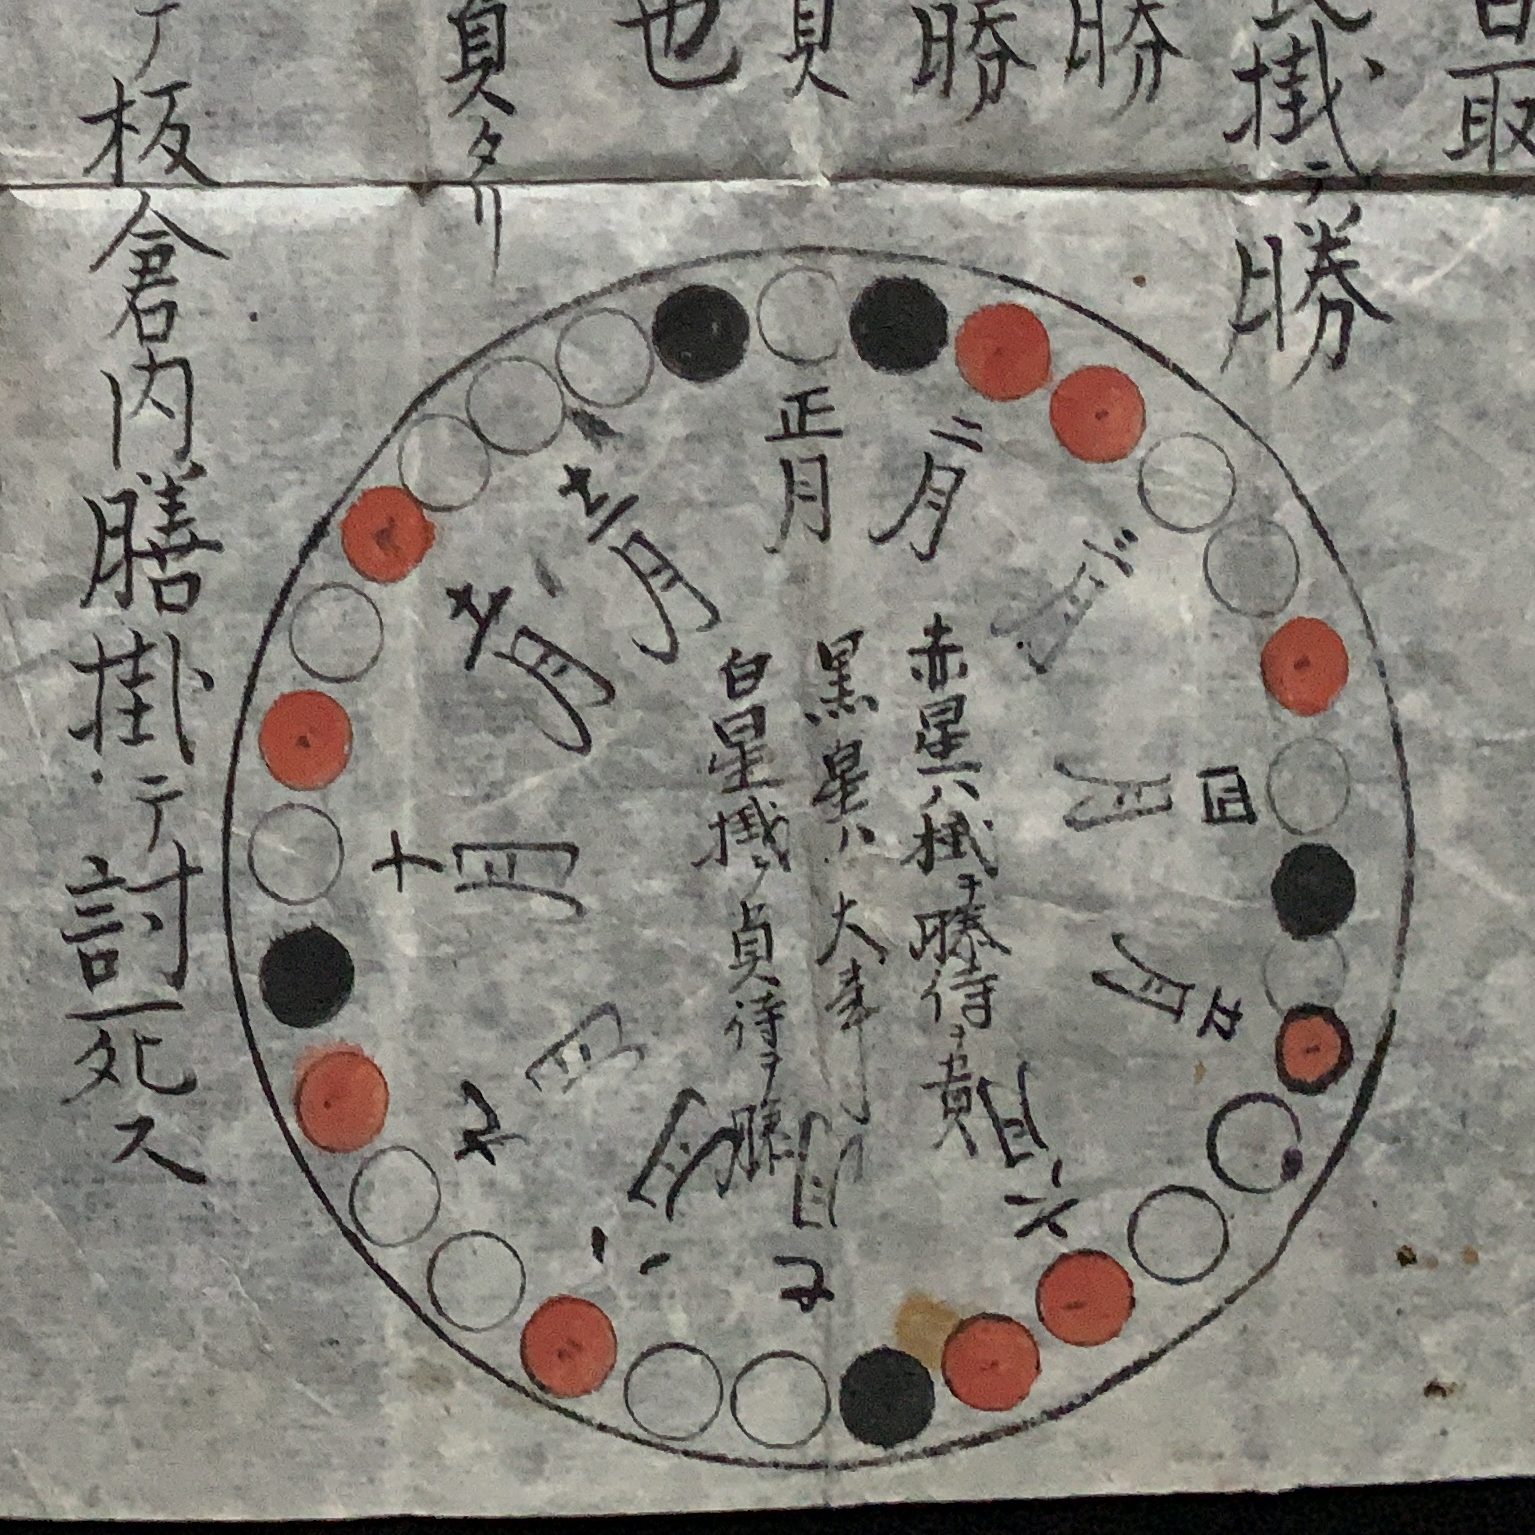 取
掛テ勝
勝
勝
負
也
負タリ
テ板倉内膳掛テ討死ス
正月
二月
三月
四月
五月
六月
七月
八月
九月
十月
十一月
十二月
赤星ハ掛テ勝待テ負
黒星ハ大事
白星掛テ負待テ勝